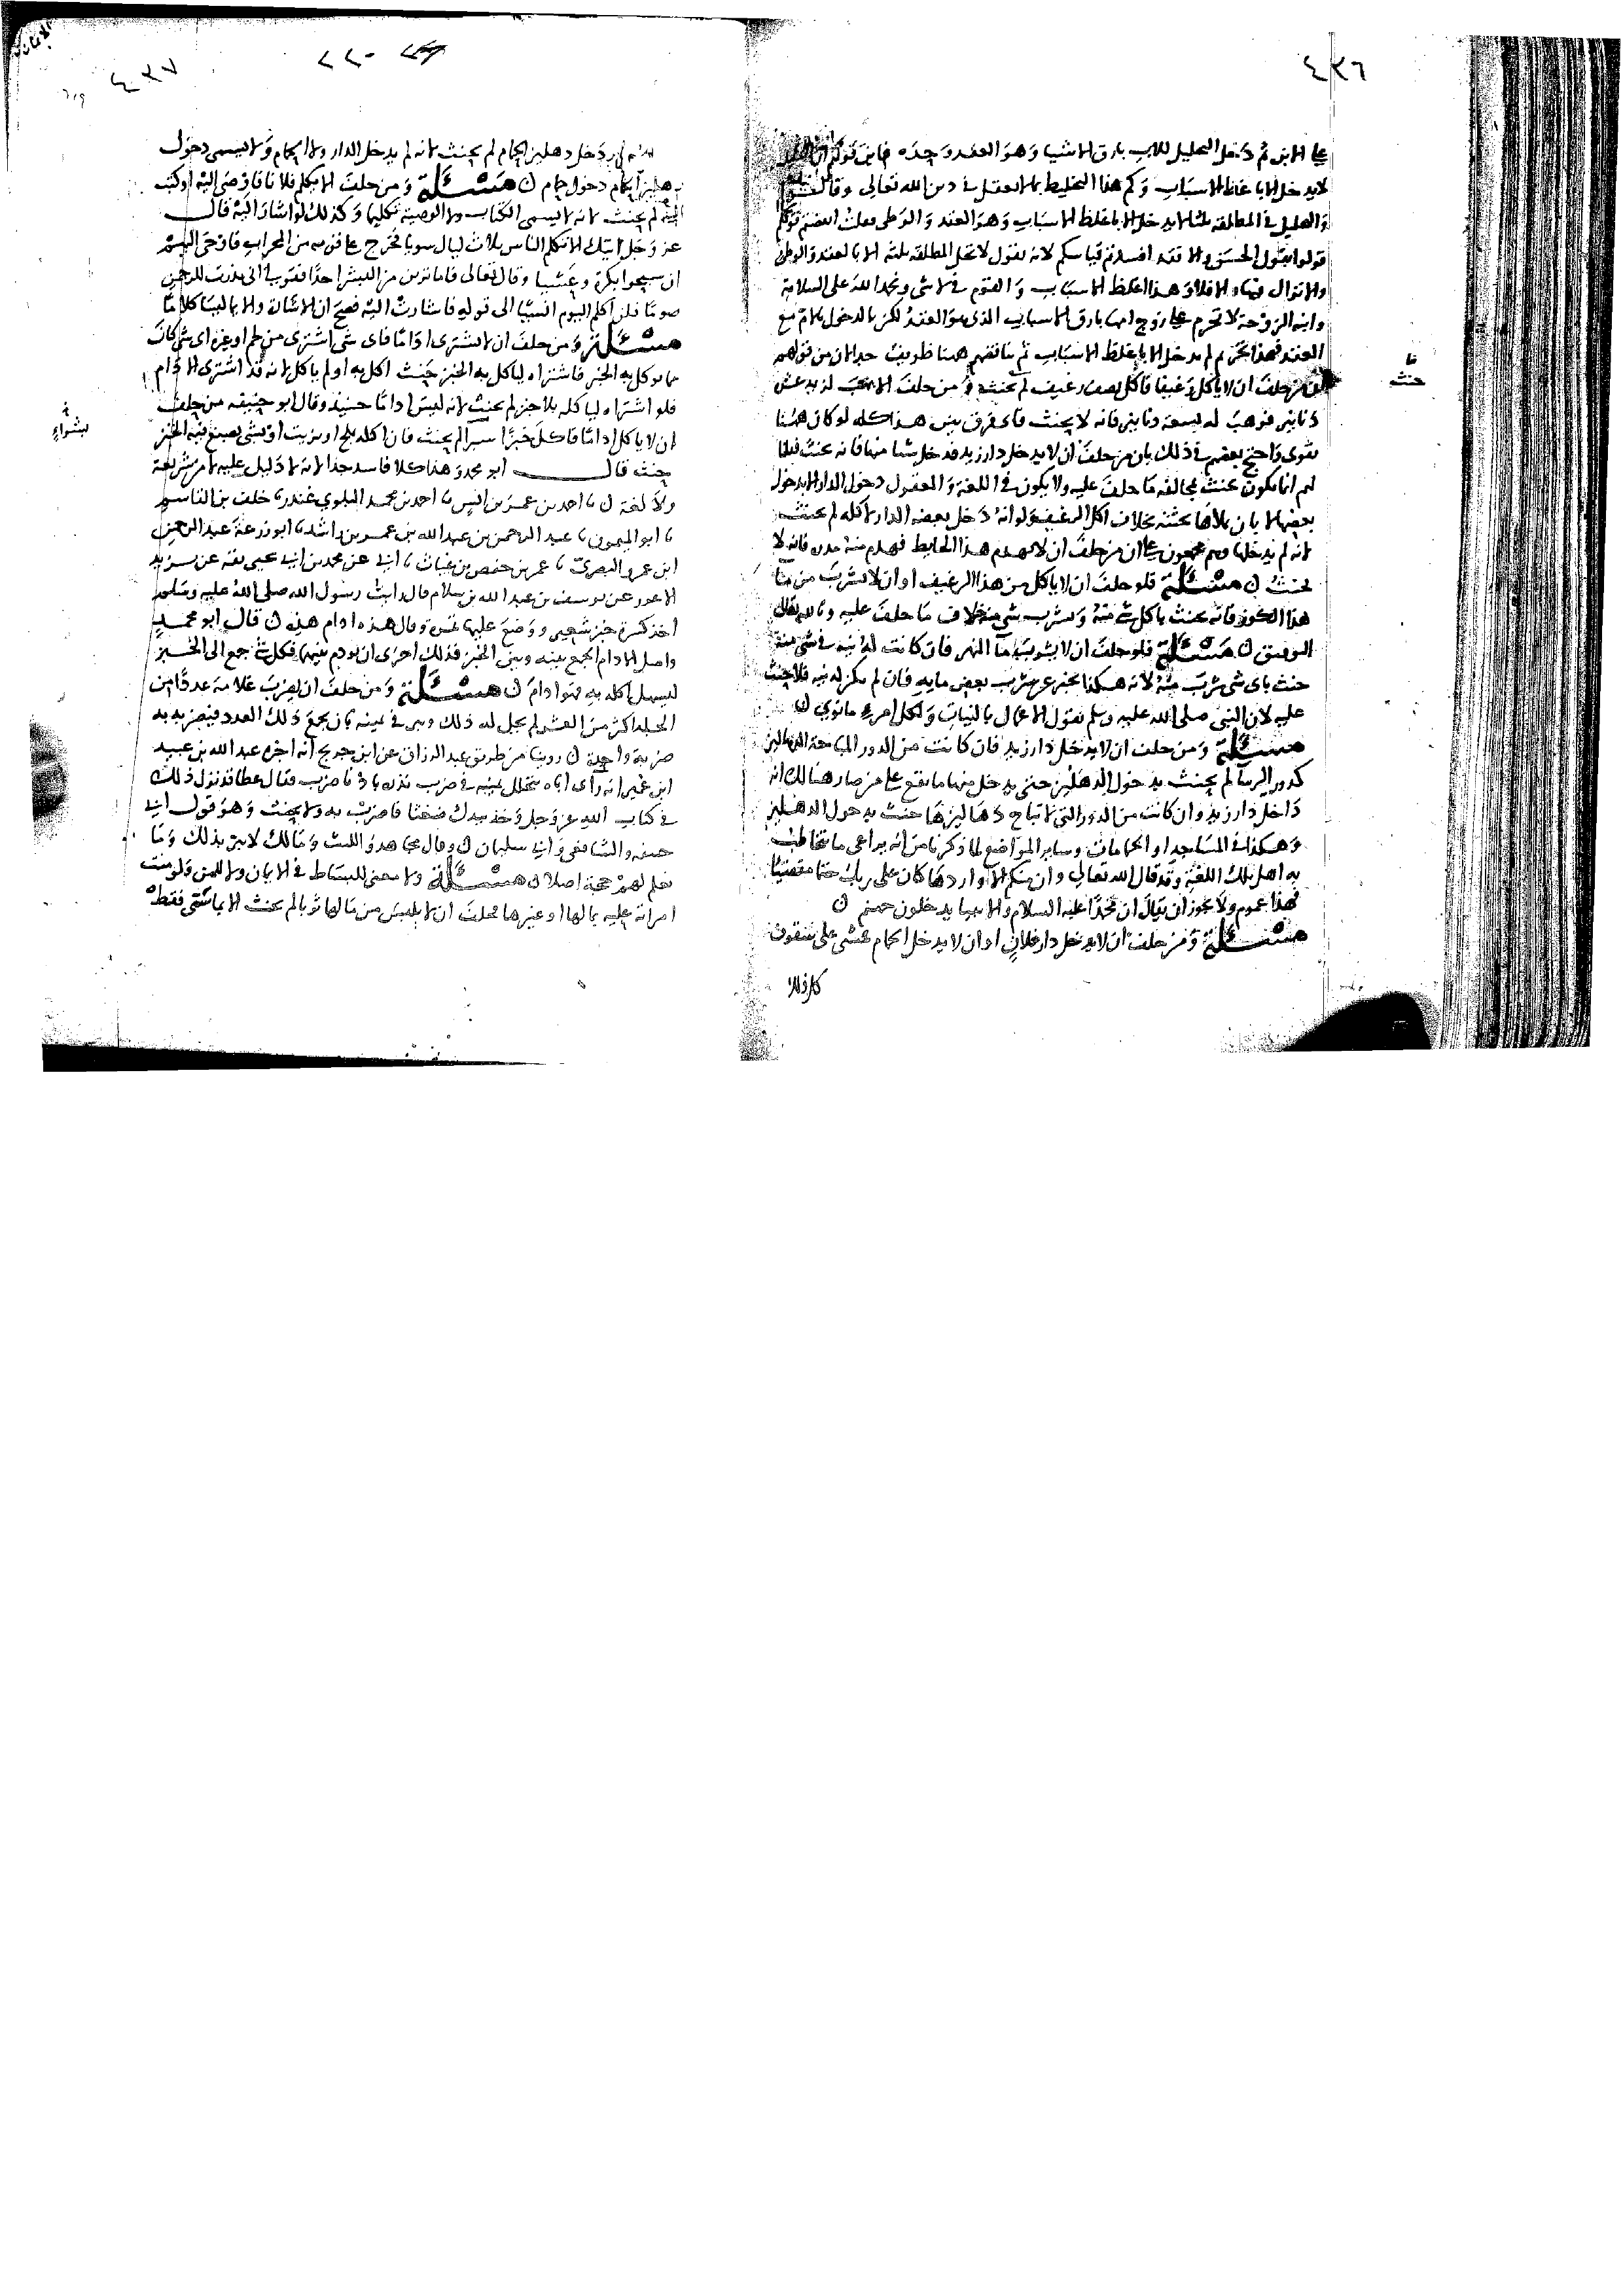 ٤٣٦
على الابن ثم دخل التحليل للاب بارق الاشيا وهو العقد وحده فاين قولكم ان التحليل
لا يدخل الا باغلظ الاسباب وكم هذا التخليط بما لا يعقل في دين الله تعالى
والتحليل في المطلقة ثلثا لا يدخل الا باغلظ الاسباب وهو العقد والوطى فعلى انفسهم قولكم
قولوا بقول الحسن والا فقد افسدتم قياسكم لانه يقول لا تحل المطلقة ثلثة الا بالعقد والوطى
والانزال فيها ولا فلا وهذا اغلظ الاسباب والقوم في لا شي ونحمد الله على السلامة
وابنه الزوجة لا تحرم على زوج امها بارق الاسباب الذي هو العقد لكن بالدخول بالام مع
العقد فهذا تحريم لم يدخل الا باغلظ الاسباب ثم تناقضهم ههنا ظريف جدا لان من قولهم
من حلف ان لا ياكل رغيفا فاكل نصف رغيف لم يحنث ومن حلف الا يهب لزيد عشرة
دنانير فوهب له تسعة دنانير فانه لا يحنث فاى فرق بين هذا كله لو كان ههنا
تقوى واحتج بعضهم في ذلك بان من حلف ان لا يدخل دار زيد فدخل شيا منها فانه يحنث قلنا
لهم انما يكون يحنث بمخالفه ما حلف عليه ولا يكون في اللغة والمعقول دخول الدار الا بدخول
بعضها لا بان يملاها بجثته بخلاف اكل الرغيف ولو انه ادخل بعضه الدار لا كله لم يحنث
لانه لم يدخلها وهم مجمعون على ان من حلف ان لا يهدم هذا الحايط فهدم منه مدره فانه لا
يحنث مسئلة فلو حلف ان لا ياكل من هذا الرغيف او ان لا يشرب من ما
هذا الكوز فانه يحنث باكل شى منه وبشرب شى منه خلاف ما حلف عليه وبالله تعالى
التوفيق مسئلة فلو حلف ان لا يشرب ما النهر فان كانت له نية في شى منه
حنث باى شى شرب منه لانه هكذا يخبر عن شرب بعض مايه فان لم تكن له نيه فلا حنث
عليه لان النبى صلى الله عليه وسلم يقول الاعمال بالنيات ولكل امرء ما نوى
مسئلة ومن حلف ان لا يدخل دار زيد فان كانت من الدور المباحة الدهاليز
كدور الروسا لم يحنث بدخول الدهليز حتى يدخل منها ما يقع على من صار هنالك انه
داخل دار زيد وان كانت من الدور التى لا تباح دهاليزها حنث بدخول الدهليز
وهكذا في المساجد او الحمامات وساير المواضع لما ذكرنا من انه يراعى ما يتخاطب
به اهل تلك اللغة وقد قال الله تعالى وان منكم الا واردها كان على ربك حتما مقضيا
فهذا عموم ولا يجوز ان يقال ان محمدا عليه السلام والانبيا يدخلون جهنم
مسئلة ومن حلف ان لا يدخل دار فلان او ان لا يدخل الحمام فمشى على سقوف
كل ذلك
حنث
٤٣٧
٢٢٠
او دخل دهليز الحمام لم يحنث لانه لم يدخل الدار ولا الحمام ولا يسمى دخول
دهليز الحمام دخول حمام مسئلة ومن حلف الا يكلم فلانا فاوصى اليه او كتب
اليه لم يحنث لانه لا يسمى الكتاب ولا الوصية تكليما وكذلك لو اشار اليه قال
عز وجل ايتك الا تكلم الناس ثلاث ليال سويا فخرج على قومه من المحراب فاوحى اليهم
ان سبحوا بكرة وعشيا وقال تعالى فاما ترين من البشر احدا فقولى انى نذرت للرحمن
صوما فلن اكلم اليوم انسيا الى قوله فاشارت اليه فصح ان الاشارة والايما ليسا كلاما
مسئلة ومن حلف ان لا يشترى اداما فاى شى اشترى من لحم او غيره اى شى كان
مما يوكل به الخبز فاشتراه لياكل به الخبز حنث اكل به او لم ياكل لانه قد اشترى الادام
فلو اشتراه لياكله بلا خبز لم يحنث لانه ليس اداما حينيذ وقال ابو حنيفه من حلف
ان لا ياكل اداما فاكل خبزا بسرا لم يحنث فان اكله بملح او بزيت او بشى يصبغ فيه الخبز
حنث قال ابو محمد وهذا كلام فاسد جدا لانه لا دليل عليه لا من شريعة
ولا لغة نا احمد بن عمر بن انس نا احمد بن محمد البلوى غندر نا خلف بن القاسم
نا ابو الميمون نا عبد الرحمن بن عبد الله بن عمر بن راشد نا ابو زرعة عبد الرحمن
ابن عمرو البصرى نا عمر بن حفص بن غياث نا ابى عن محمد بن ابى يحيى ثقه عن يزيد
الاعور عن يوسف بن عبد الله بن سلام قال رايت رسول الله صلى الله عليه وسلم
اخذ كسرة خبز شعير ووضع عليها تمره وقال هذه ادام هذه قال ابو محمد
واصل الادام الجمع بينه وبين الخبز فذلك احرى ان يودم بينهما فكل شى جمع الى الخبز
ليسهل اكله به فهو ادام مسئلة ومن حلف ان ليضرب غلامه عددا من
الجلد اكثر من العشر لم يحل له ذلك وبر في يمينه بان يجمع ذلك العدد فيضربه به
ضربة واحدة روينا من طريق عبد الرزاق عن ابن جريج انه اخبره عبد الله بن عبيد
ابن عمير انه راى اباه يتحلل يمينه في ضرب نذره بادنا ضرب فقال عطا قد نزل ذلك
في كتاب الله عز وجل وخذ بيدك ضغثا فاضرب به ولا تحنث وهو قول ابى
حنيفه والشافعى وابى سليمان وقال مجاهد والليث ومالك لا يبر بذلك وما
نعلم لهم حجة اصلا مسئلة ولا معنى للبساط في الايمان ولا للمن فلو منت
امراته عليه بمالها او غيرها فحلف ان لا يلبس من مالها ثوبا لم يحنث الا بما سمى فقط
بشراءٍ